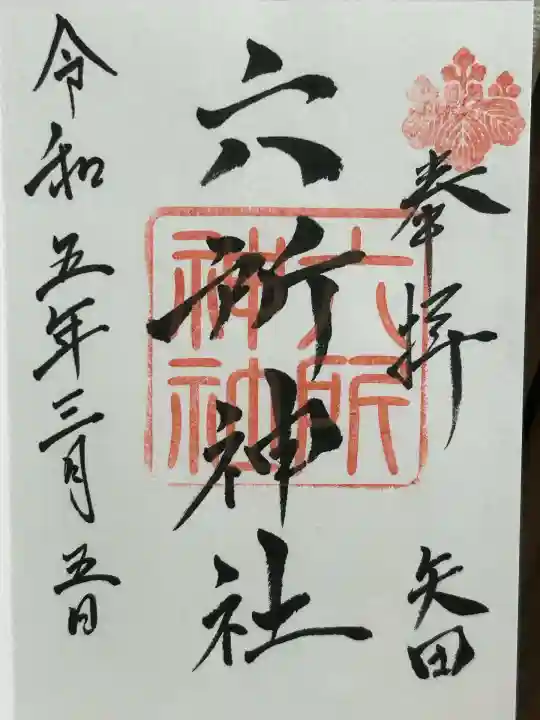 奉拝
矢田
六所神社
六所
神社
令和五年三月五日